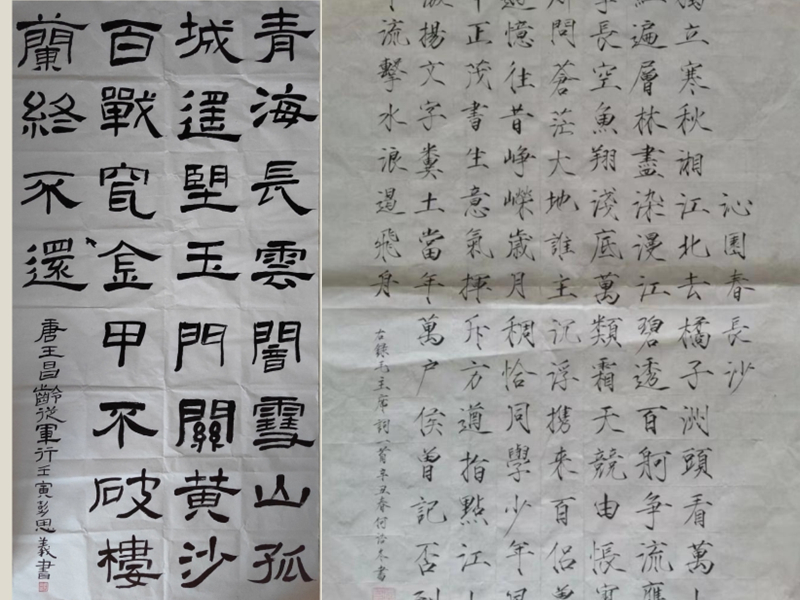 青海長雲闇雪山孤
城遥望玉門關黄沙
百戰穿金甲不破樓
蘭終不還
唐王昌齡從軍行壬寅彭思義書
沁園春長沙
立寒秋湘江北去橘子洲頭看萬
遍層林盡染漫江碧透百舸争流鷹
長空魚翔淺底萬類霜天競由悵寥
問蒼茫大地誰主沉浮携來百侣
憶往昔崢嶸歲月稠恰同學少年風
正茂書生意氣揮斥方遒指點江
揚文字糞土當年萬户侯曾記否到
流擊水浪遏飛舟
右錄毛主席詞一首辛丑春何書